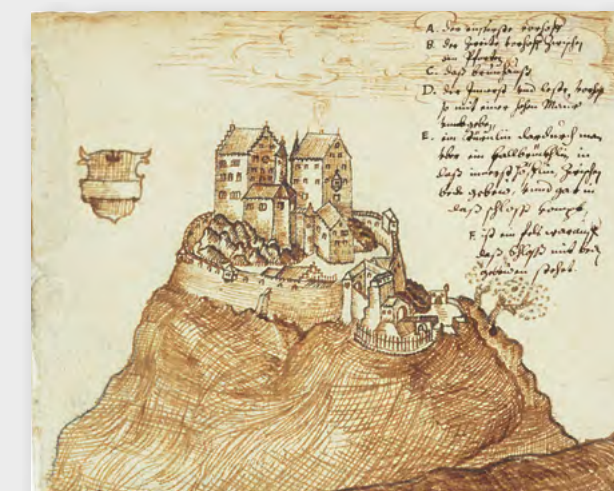 A. der eüsserste vorhoff
B. der Zweite vorhoff Zwischen
den Pforten
C. daß brunhauß
D. der Innerst und leste vorhof
so mit einer hohen Maur
umbgeben
E. im thürnlin dardurch man
über ein fallbrückhlin in
daß innerst Zwischen
beede und gar in
daß schloß kompt
F. ist ein felß warauff
daß Schloß mit
stehet